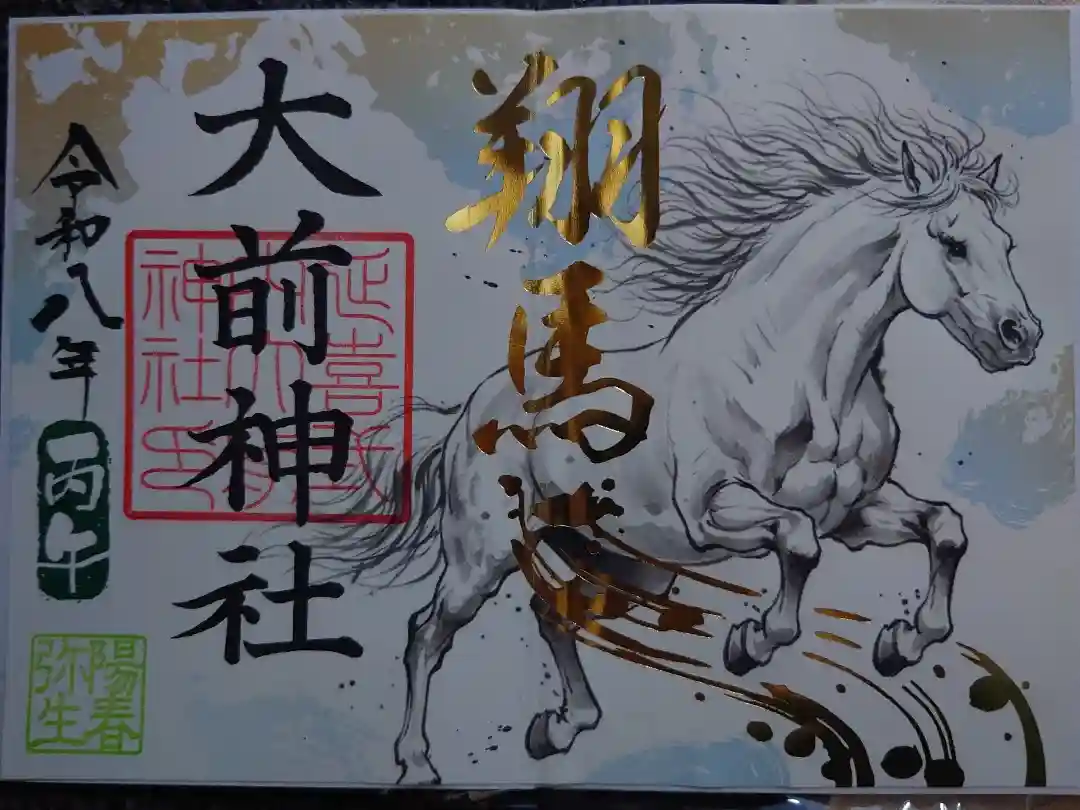 翔馬
大前神社
延喜式
神社印
令和八年
丙午
陽春
弥生